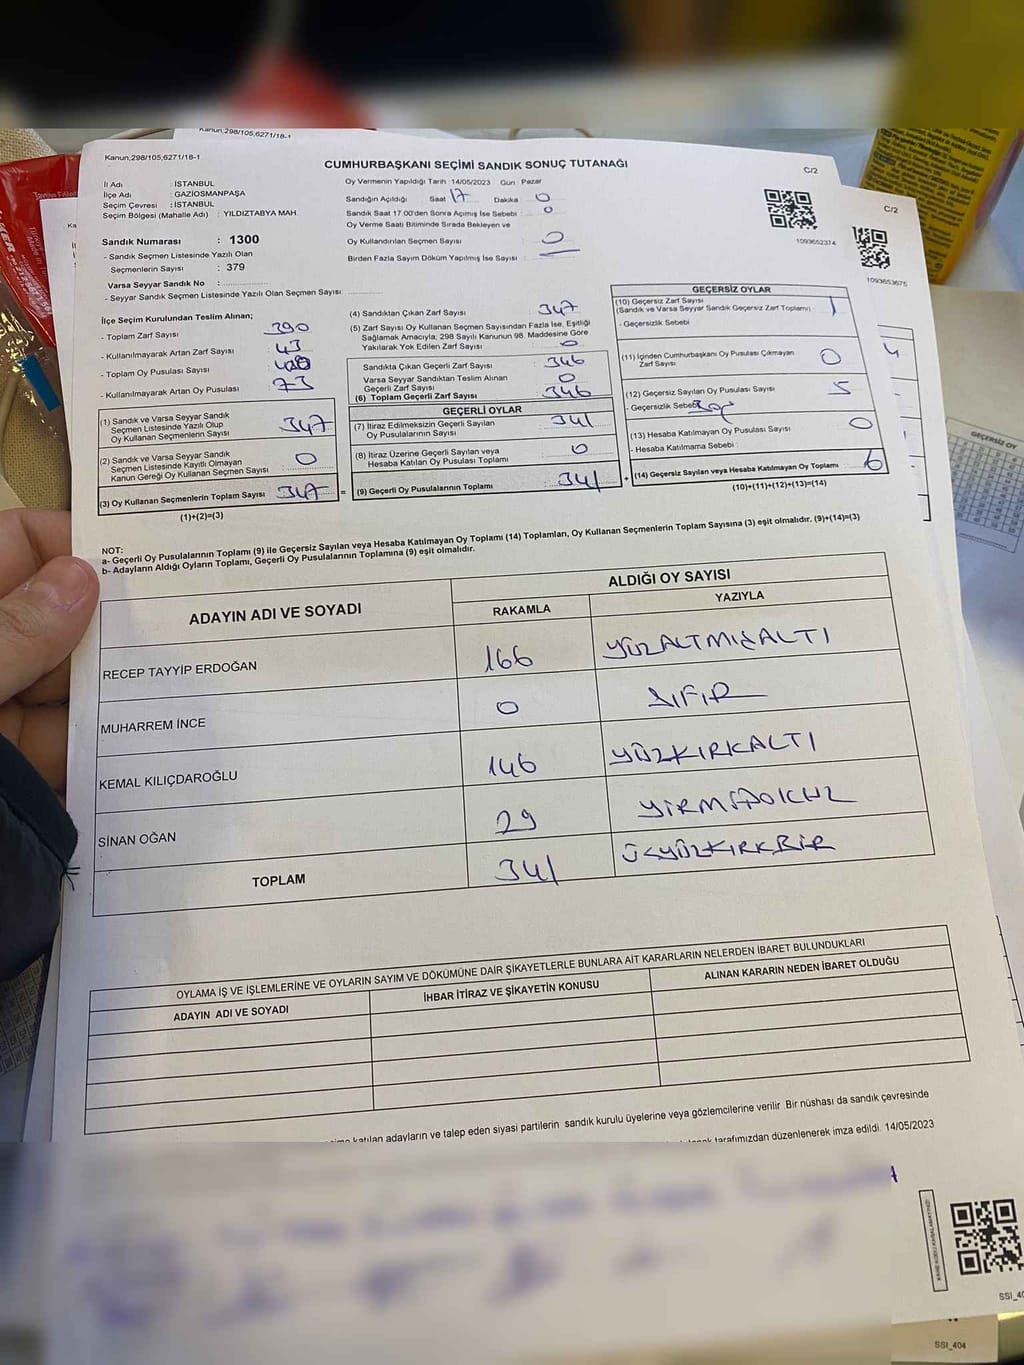 Kanun,298/105,6271/18-1
Kanun,298/105,6271/18-1
CUMHURBAŞKANI SEÇİMİ SANDIK SONUÇ TUTANAĞI
C/2
İl Adı : İSTANBUL
İlçe Adı : GAZİOSMANPAŞA
Seçim Çevresi : İSTANBUL
Seçim Bölgesi (Mahalle Adı) : YILDIZTABYA MAH.
Sandık Numarası : 1300
- Sandık Seçmen Listesinde Yazılı Olan
Seçmenlerin Sayısı : 379
Varsa Seyyar Sandık No :
- Seyyar Sandık Seçmen Listesinde Yazılı Olan Seçmen Sayısı:
Oy Vermenin Yapıldığı Tarih :14/05/2023 Gün : Pazar
Sandığın Açıldığı Saat 17 Dakika 0
Sandık Saat 17.00'den Sonra Açılmış İse Sebebi : 0
Oy Verme Saati Bitiminde Sırada Bekleyen ve
Oy Kullandırılan Seçmen Sayısı 0
Birden Fazla Sayım Döküm Yapılmış İse Sayısı :
1093652374
C/2
1093653675
İlçe Seçim Kurulundan Teslim Alınan;
- Toplam Zarf Sayısı 390
- Kullanılmayarak Artan Zarf Sayısı 43
- Toplam Oy Pusulası Sayısı
- Kullanılmayarak Artan Oy Pusulası 73
(1) Sandık ve Varsa Seyyar Sandık
Seçmen Listesinde Yazılı Olup
Oy Kullanan Seçmenlerin Sayısı 347
(2) Sandık ve Varsa Seyyar Sandık
Seçmen Listesinde Kayıtlı Olmayan
Kanun Gereği Oy Kullanan Seçmen Sayısı 0
(3) Oy Kullanan Seçmenlerin Toplam Sayısı 347 =
(1)+(2)=(3)
(4) Sandıktan Çıkan Zarf Sayısı 347
(5) Zarf Sayısı Oy Kullanan Seçmen Sayısından Fazla İse, Eşitliği
Sağlamak Amacıyla, 298 Sayılı Kanunun 98. Maddesine Göre
Yakılarak Yok Edilen Zarf Sayısı 0
Sandıkta Çıkan Geçerli Zarf Sayısı 346
Varsa Seyyar Sandıktan Teslim Alınan
Geçerli Zarf Sayısı 0
(6) Toplam Geçerli Zarf Sayısı 346
GEÇERLİ OYLAR
(7) İtiraz Edilmeksizin Geçerli Sayılan
Oy Pusulalarının Sayısı 341
(8) İtiraz Üzerine Geçerli Sayılan veya
Hesaba Katılan Oy Pusulası Toplamı 0
(9) Geçerli Oy Pusulalarının Toplamı 341 +
GEÇERSİZ OYLAR
(10) Geçersiz Zarf Sayısı
(Sandık ve Varsa Seyyar Sandık Geçersiz Zarf Toplamı) 1
- Geçersizlik Sebebi
(11) İçinden Cumhurbaşkanı Oy Pusulası Çıkmayan
Zarf Sayısı 0
(12) Geçersiz Sayılan Oy Pusulası Sayısı 5
- Geçersizlik Sebebi
(13) Hesaba Katılmayan Oy Pusulası Sayısı 0
- Hesaba Katılmama Sebebi :
(14) Geçersiz Sayılan veya Hesaba Katılmayan Oy Toplamı 6
(10)+(11)+(12)+(13)=(14)
GEÇERSİZ OY
NOT:
a- Geçerli Oy Pusulalarının Toplamı (9) ile Geçersiz Sayılan veya Hesaba Katılmayan Oy Toplamı (14) Toplamları, Oy Kullanan Seçmenlerin Toplam Sayısına (3) eşit olmalıdır. (9)+(14)=(3)
b- Adayların Aldığı Oyların Toplamı, Geçerli Oy Pusulalarının Toplamına (9) eşit olmalıdır.
ADAYIN ADI VE SOYADI
ALDIĞI OY SAYISI
RAKAMLA YAZIYLA
RECEP TAYYİP ERDOĞAN 166 YÜZALTMIŞALTI
MUHARREM İNCE 0 SIFIR
KEMAL KILIÇDAROĞLU 146 YÜZKIRKALTI
SİNAN OĞAN 29 YİRMİDOKUZ
TOPLAM 341 ÜÇYÜZKIRKBİR
OYLAMA İŞ VE İŞLEMLERİNE VE OYLARIN SAYIM VE DÖKÜMÜNE DAİR ŞİKAYETLERLE BUNLARA AİT KARARLARIN NELERDEN İBARET BULUNDUKLARI
ADAYIN ADI VE SOYADI İHBAR İTİRAZ VE ŞİKAYETİN KONUSU ALINAN KARARIN NEDEN İBARET OLDUĞU
katılan adayların ve talep eden siyasi partilerin sandık kurulu üyelerine veya gözlemcilerine verilir Bir nüshası da sandık çevresinde
tarafımızdan düzenlenerek imza edildi. 14/05/2023
SSI_40
SSI_404